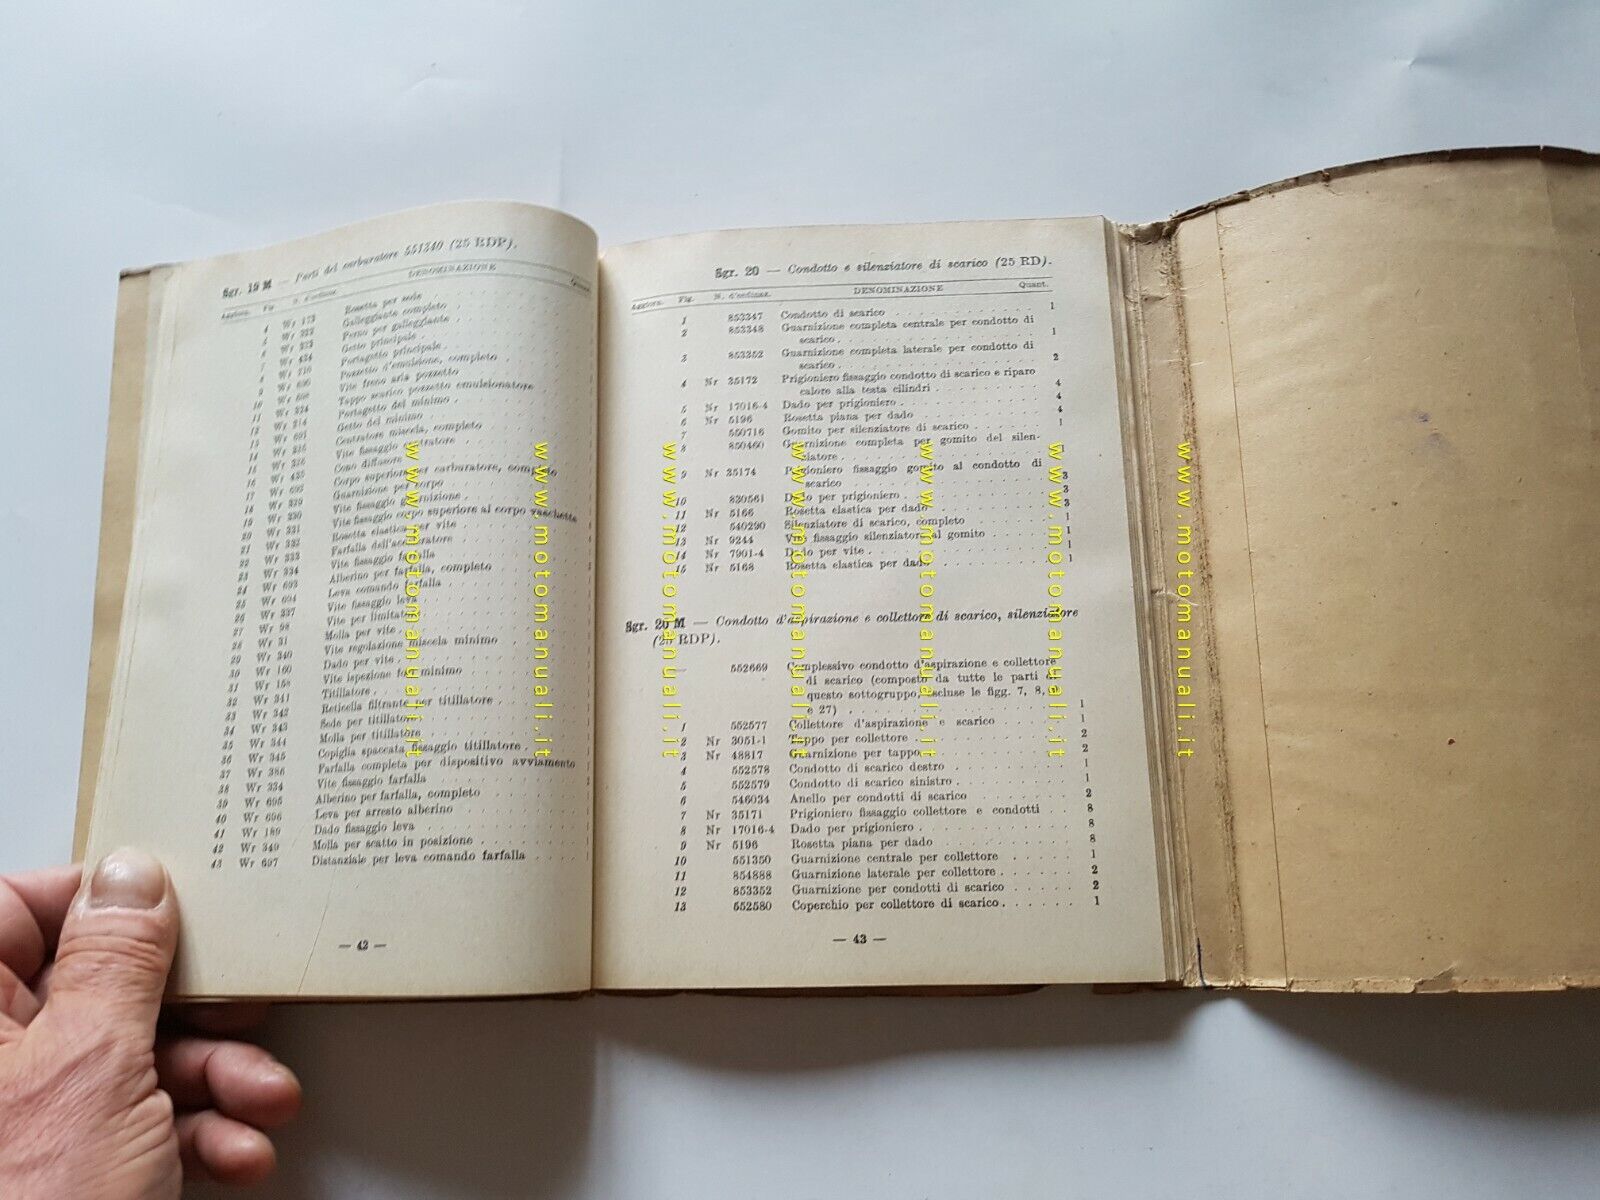 Sgr. 19 M — Parti del carburatore 551340 (25 RDP).
Aggiorn. Fig. N. d'ordinaz. DENOMINAZIONE Quant.
4 Wr 173 Rosetta per sede
5 Wr 222 Galleggiante completo
6 Wr 223 Perno per galleggiante
7 Wr 434 Getto principale
8 Wr 210 Portagetto principale
9 Wr 695 Pozzetto d'emulsione, completo
10 Wr 698 Vite freno aria pozzetto
11 Wr 224 Tappo scarico pozzetto emulsionatore
12 Wr 214 Portagetto del minimo
Getto del minimo
Centratore miscela, completo
Vite fissaggio centratore
Cono diffusore
Corpo superiore per carburatore, completo
Guarnizione per corpo
Vite fissaggio guarnizione
Vite fissaggio corpo superiore al corpo vaschetta
Rosetta elastica per vite
Farfalla dell'acceleratore
Vite fissaggio farfalla
Alberino per farfalla, completo
Leva comando farfalla
Vite fissaggio leva
Vite per limitatore
Molla per vite
Vite regolazione miscela minimo
Dado per vite
Vite ispezione fori minimo
Titillatore
Reticella filtrante per titillatore
Sede per titillatore
Molla per titillatore
Copiglia spaccata fissaggio titillatore
Farfalla completa per dispositivo avviamento
38 Wr 334 Vite fissaggio farfalla
39 Wr 695 Alberino per farfalla, completo
40 Wr 696 Leva per arresto alberino
41 Wr 189 Dado fissaggio leva
42 Wr 349 Molla per scatto in posizione
43 Wr 697 Distanziale per leva comando farfalla
— 42 —
Sgr. 20 — Condotto e silenziatore di scarico (25 RD).
Aggiorn. Fig. N. d'ordinaz. DENOMINAZIONE Quant.
1 853347 Condotto di scarico 1
2 853348 Guarnizione completa centrale per condotto di
scarico 1
3 853352 Guarnizione completa laterale per condotto di
scarico 2
4 Nr 35172 Prigioniero fissaggio condotto di scarico e riparo
calore alla testa cilindri 4
5 Nr 17016-4 Dado per prigioniero 4
6 Nr 5196 Rosetta piana per dado 4
7 550716 Gomito per silenziatore di scarico 1
8 850460 Guarnizione completa per gomito del silen-
ziatore 1
9 Nr 35174 Prigioniero fissaggio gomito al condotto di
scarico 3
10 830561 Dado per prigioniero 3
11 Nr 5166 Rosetta elastica per dado 3
12 540290 Silenziatore di scarico, completo 1
13 Nr 9244 Vite fissaggio silenziatore al gomito 1
14 Nr 7901-4 Dado per vite 1
15 Nr 5168 Rosetta elastica per dado 1
Sgr. 20 M — Condotto d'aspirazione e collettore di scarico, silenziatore
(25 RDP).
— 552669 Complessivo condotto d'aspirazione e collettore
di scarico (composto da tutte le parti di
questo sottogruppo, escluse le figg. 7, 8, 9
e 27) 1
1 552577 Collettore d'aspirazione e scarico 1
2 Nr 3051-1 Tappo per collettore 2
3 Nr 48817 Guarnizione per tappo 2
4 552578 Condotto di scarico destro 1
5 552579 Condotto di scarico sinistro 1
6 546034 Anello per condotti di scarico 2
7 Nr 35171 Prigioniero fissaggio collettore e condotti 8
8 Nr 17016-4 Dado per prigioniero 8
9 Nr 5196 Rosetta piana per dado 8
10 551350 Guarnizione centrale per collettore 1
11 854888 Guarnizione laterale per collettore 2
12 853352 Guarnizione per condotti di scarico 2
13 552580 Coperchio per collettore di scarico 1
— 43 —
www.motomanuali.it
www.motomanuali.it
www.motomanuali.it
www.motomanuali.it
www.motomanuali.it
www.motomanuali.it
www.motomanuali.it